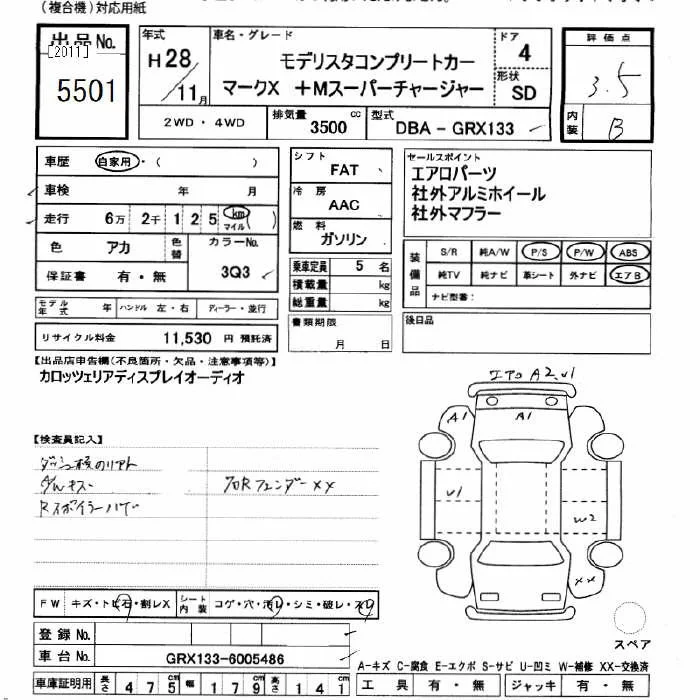 （複合機）対応用紙
出品No.
[2011]
5501
年式
H28
/11月
車名・グレード
モデリスタコンプリートカー
マークX ＋Mスーパーチャージャー
ドア
4
形状
SD
評価点
3.5
内装
B
2WD・4WD
排気量
3500 cc
型式
DBA - GRX133
車歴 自家用・( )
車検 年 月
走行 6万 2千 1 2 5 km マイル ( )
色 アカ
色替
カラーNo.
3Q3
保証書 有・無
シフト
FAT
冷房
AAC
燃料
ガソリン
乗車定員 5 名
積載量 kg
総重量 kg
書類期限
月 日
セールスポイント
エアロパーツ
社外アルミホイール
社外マフラー
装備品
S/R 純A/W P/S P/W ABS
純TV 純ナビ 革シート 外ナビ エアB
ナビ型番：
後日品
モデル年式 年 ハンドル 左・右 ディーラー・並行
リサイクル料金 11,530 円 預託済
【出品店申告欄(不良箇所・欠品・注意事項等)】
カロッツェリアディスプレイオーディオ
【検査員記入】
Rスポイラーハゲ
エアロ A2.U1
A1
A1
U1
W2
XX
FW キズ・トビ石・割レX
シート内装 コゲ・穴・汚レ・シミ・破レ・スレ
登録No.
車台No. GRX133-6005486
スペア
A-キズ C-腐食 E-エクボ S-サビ U-凹ミ W-補修 XX-交換済
車庫証明用 長さ 4 7 5 cm 幅 1 7 9 cm 高さ 1 4 1 cm
工具 有・無 ジャッキ 有・無